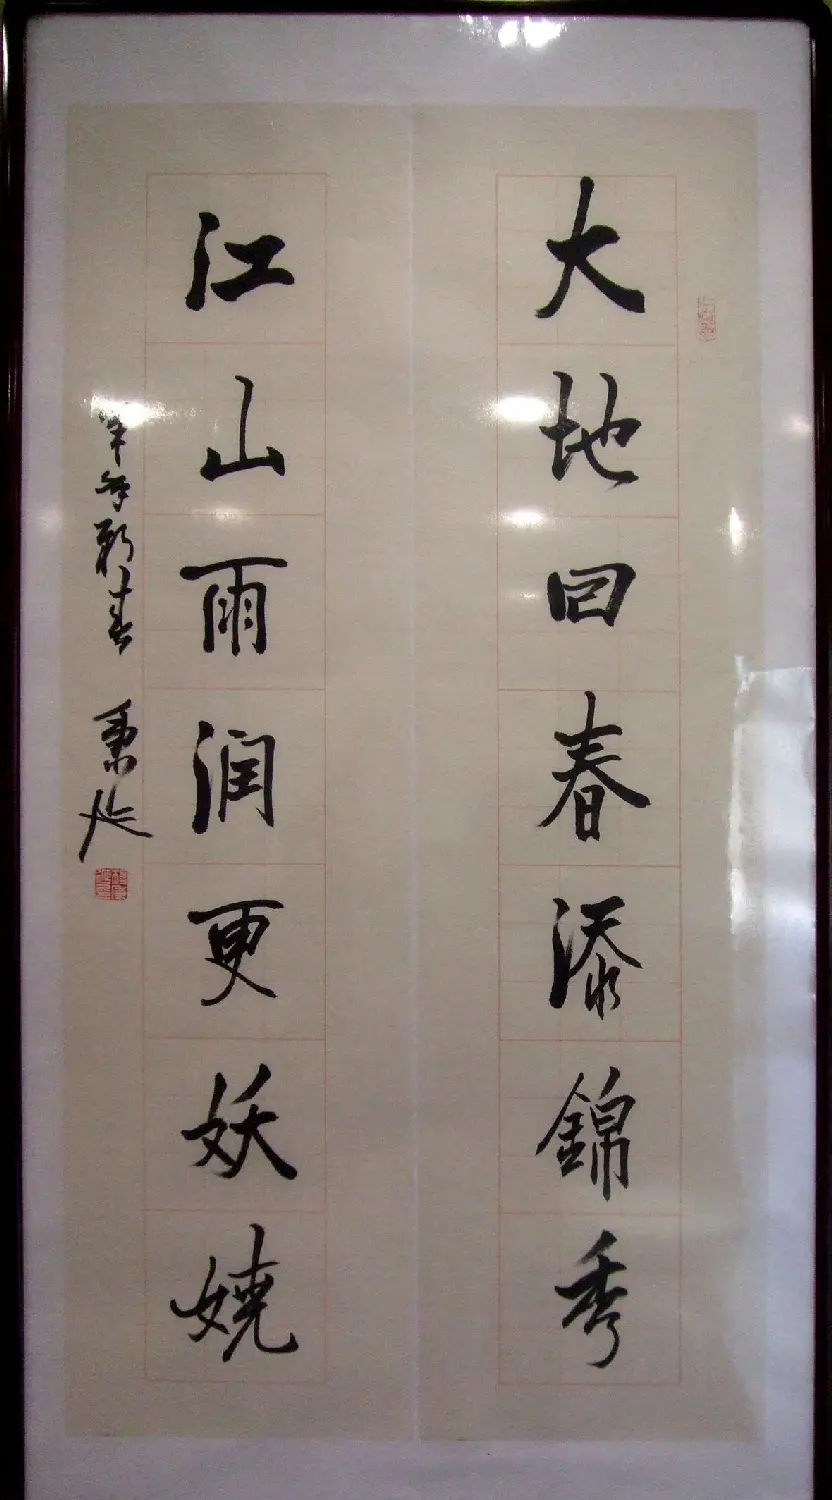 大地回春添錦秀
江山雨润更妖娆
羊年新春